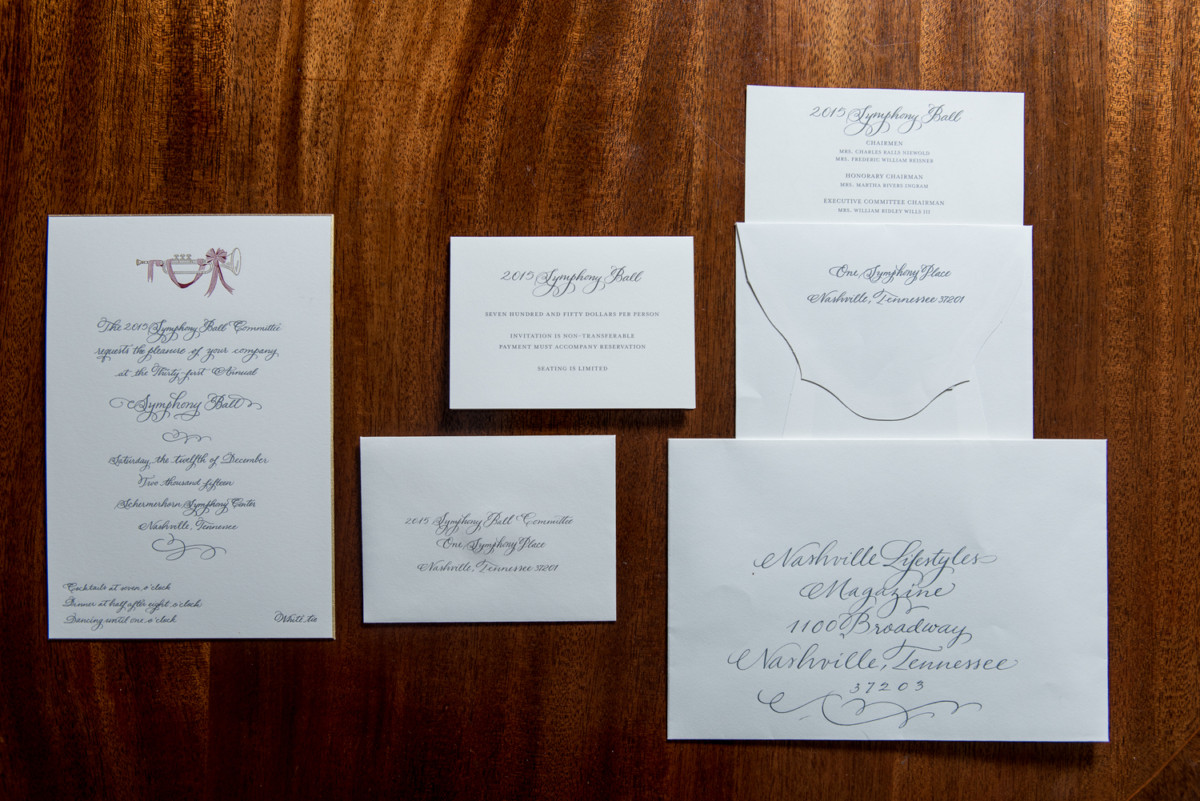 The 2015 Symphony Ball Committee
requests the pleasure of your company
at the Thirty-first Annual
Symphony Ball
Saturday, the twelfth of December
Two thousand fifteen
Schermerhorn Symphony Center
Nashville, Tennessee
Cocktails at seven o'clock
Dinner at half after eight o'clock
Dancing until one o'clock
White tie
2015 Symphony Ball
SEVEN HUNDRED AND FIFTY DOLLARS PER PERSON
INVITATION IS NON-TRANSFERABLE
PAYMENT MUST ACCOMPANY RESERVATION
SEATING IS LIMITED
2015 Symphony Ball Committee
One Symphony Place
Nashville, Tennessee 37201
2015 Symphony Ball
CHAIRMEN
MRS. CHARLES RALLS NIEWOLD
MRS. FREDERIC WILLIAM REISNER
HONORARY CHAIRMAN
MRS. MARTHA RIVERS INGRAM
EXECUTIVE COMMITTEE CHAIRMAN
MRS. WILLIAM RIDLEY WILLS III
One Symphony Place
Nashville, Tennessee 37201
Nashville Lifestyles
Magazine
1100 Broadway
Nashville, Tennessee
37203